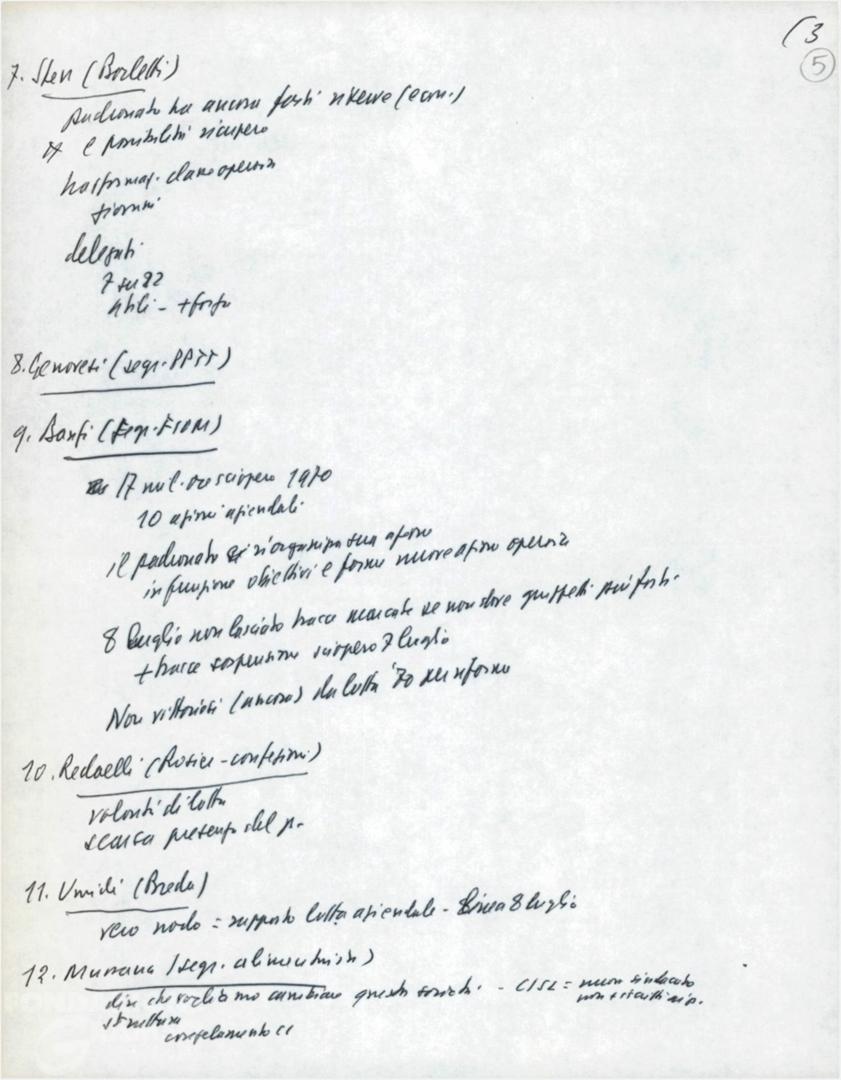 (3
5
7. Sten (Borletti)
padronato ha ancora forti riserve (econ.)
e possibilità ricupero
trasformaz. classe operaia
giovani
delegati
7 su 22
abili - + forza
8. Genovesi (segr. PPTT)
9. Banfi (Segr. FIOM)
17 mil. ore sciopero 1970
10 azioni aziendali
il padronato riorganizza sua azione
in funzione obiettivi e forme nuove azione operaia
8 luglio non lasciato tracce marcate se non dove gruppetti più forti.
+ tracce sospensione sciopero 7 luglio
Non vittoriosi (ancora) da lotta '70 per riforme
10. Redaelli (Rosier - confezioni)
volontà di lotta
scarsa presenza del p.
11. Umidi (Breda)
vero nodo = rapporto lotta aziendale - linea 8 luglio
12. Murrana (segr. alimentaristi)
dire che vogliamo cambiare questa società. - CISL = nuovo sindacato
non
struttura
congelamento